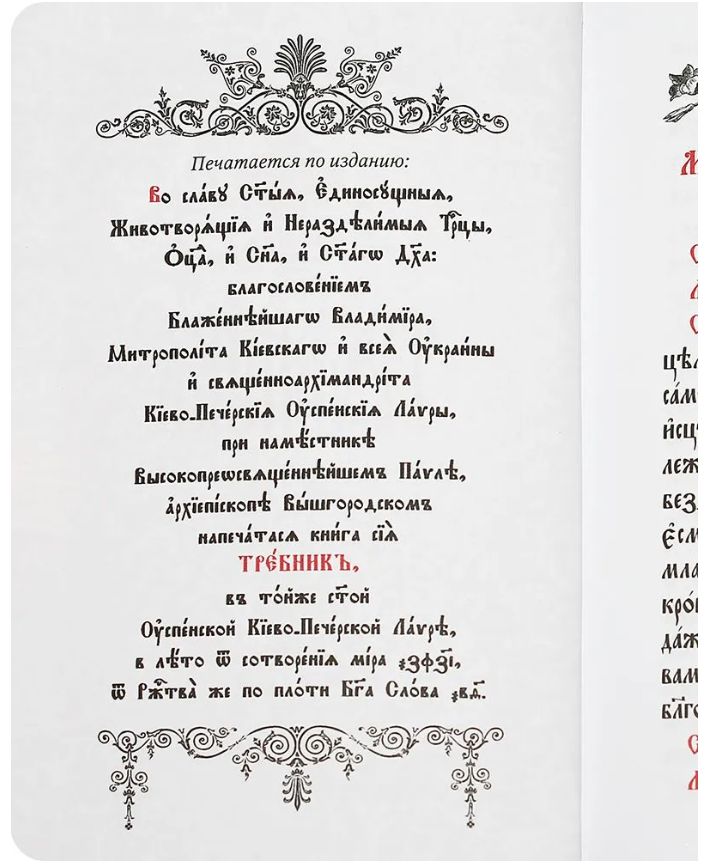 Печатается по изданию:
Во сла́вꙋ Ст҃ы́ѧ, Є҆диносꙋ́щныѧ,
Животворѧ́щїѧ и҆ Нераздѣли́мыѧ Трⷪ҇цы,
Ѻ҆ц҃а̀, и҆ Сн҃а, и҆ Ст҃а́гѡ Дх҃а:
благослове́нїемъ
Блаже́ннѣйшагѡ Влади́мїра,
Митрополі́та Кі́евскагѡ и҆ всеѧ̀ Оу҆краи́ны
и҆ свѧще́нноархїмандрі́та
Кїево-Пече́рскїѧ Оу҆спе́нскїѧ Ла́ѵры,
при намѣ́стникѣ
Высокопреѡсвѧще́ннѣйшемъ Па́ѵлѣ,
а҆рхїепі́скопѣ Вы́шгородскомъ
напеча́тасѧ кни́га сїѧ̀
ТРЕ́БНИКЪ,
въ то́йже ст҃ой
Оу҆спе́нской Кїево-Пече́рской Ла́ѵрѣ,
в лѣ́то ѿ сотворе́нїѧ мі́ра ҂зфз҃і,
ѿ Рж҃тва̀ же по пло́ти Бг҃а Сло́ва ҂вд҃.
цѣл
са́м
и҆сц
леж
без
є҆см
мла
кро́
да́ж
вам
бл҃го